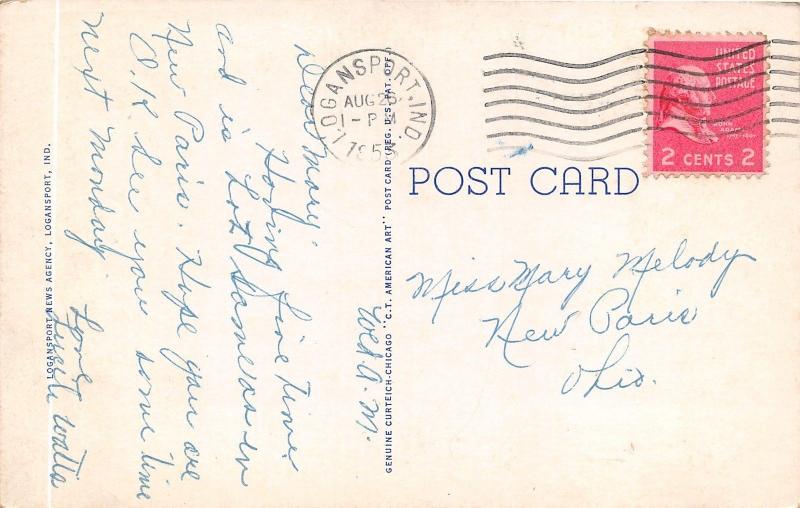 LOGANSPORT, IND.
AUG 26
1 - PM
195
UNITED
STATES
POSTAGE
JOHN
ADAMS
2 CENTS 2
POST CARD
Miss Mary Melody
New Paris
Ohio.
GENUINE CURTEICH-CHICAGO "C.T. AMERICAN ART" POST CARD (REG. U.S. PAT. OFF.)
Wed A.M.
Dear Mary:
Having fine time
and is hot same as in
New Paris. Hope you are
O.K. See you some time
next Monday
Love
Lucile Watts
LOGANSPORT NEWS AGENCY, LOGANSPORT, IND.